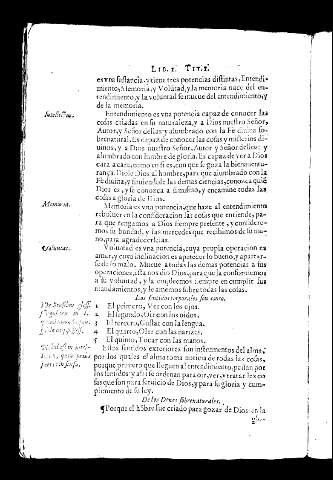 LIB. I. TIT. I.
es vna sustancia, y tiene tres potencias distintas, Entendi-
miento, Memoria, y Volũtad, y la memoria nace del en-
tendimiento, y la voluntad se mueue del entendimiento, y
de la memoria.
Entendimiento es vna potencia capaz de conocer las
cosas criadas en su naturaleza, y a Dios nuestro Señor,
Autor, y Señor dellas y alumbrado con la Fè diuina so-
brenatural. Es capaz de conocer las cosas y misterios di-
uinos, y a Dios nuestro Señor, Autor y Señor dellas: y
alumbrado con lumbre de gloria. Es capaz de ver a Dios
cara a cara, como en si es, con que se goza la bienauentu-
rança. Diòle Dios al hombre, para que alumbrado con la
Fè diuina, y siruiendose las demas ciencias, conozca quiẽ
Dios es, y se conozca a si mismo, y encamine todas las
cosas a gloria de Dios.
Memoria.
Memoria es vna potencia, que haze al entendimiento
reboluer en la consideracion las cosas que entiende, pa-
ra que tengamos a Dios siempre presente, y considere-
mos su bondad, y las mercedes que recibimos de su ma-
no, para agradecerselas.
Voluntad es vna potencia, cuya propia operacion es
amar, y cuya inclinacion es apetecer lo bueno, y apartar-
se de lo malo. Mueue a todas las demas potencias a sus
operaciones, diònosla Dios, para que la conformemos
a su voluntad, y la empleemos siempre en cumplir sus
mandamientos, y le amemos sobre todas las cosas.
Los sentidos corporales son cinco.
1 El primero, Ver con los ojos.
2 El segundo, Oir con los oidos.
3 El tercero, Gustar con la lengua.
4 El quarto, Oler con las narizes.
5 El quinto, Tocar con las manos.
Estos sentidos exteriores son instrumentos del alma,
por los quales el alma toma noticia de todas las cosas,
porque primero que lleguen al entendimiento, passan por
los sentidos y assi se ordenan para oir, ver, y tratar las co-
sas que son para seruicio de Dios, y para su gloria y cum-
plimiento de su ley.
De los Dones sobrenaturales.
¶ Porque el hõbre fue criado para gozar de Dios en la
glo-